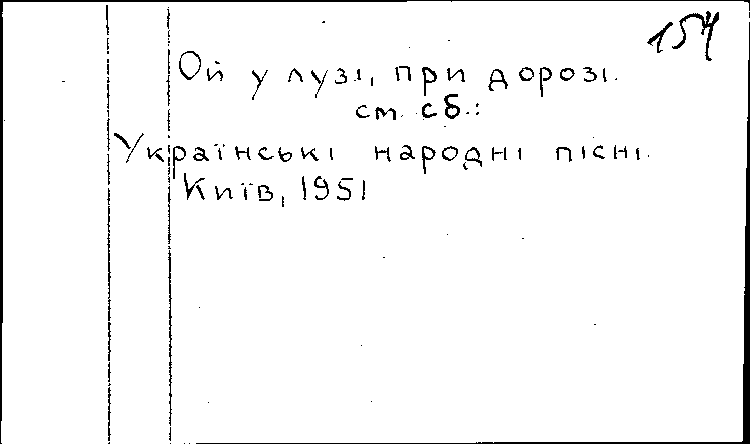 154
Ой у лузі, при дорозі.
см. сб.:
Українські народні пісні.
Київ, 1951